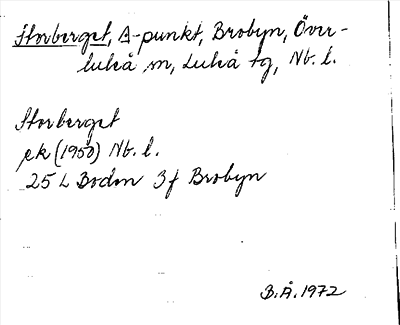 Storberget, A-punkt, Brobyn, Över-
luleå sn, Luleå tg, Nb. l.
Storberget
ek (1950) Nb. l.
25 L Boden 3f Brobyn
B.Å. 1972